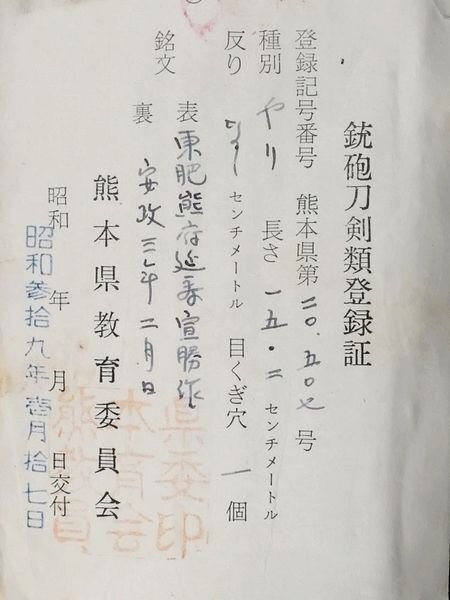 銃砲刀剣類登録証
登録記号番号 熊本県第二〇.五〇七号
種別 やり 長さ 一五.二 センチメートル
反り なし センチメートル 目くぎ穴 一個
銘文 表 東肥熊府延寿宣勝作
裏 安政三年二月日
熊本県教育委員会
昭和 年 月 日交付
昭和参拾九年壱月拾七日